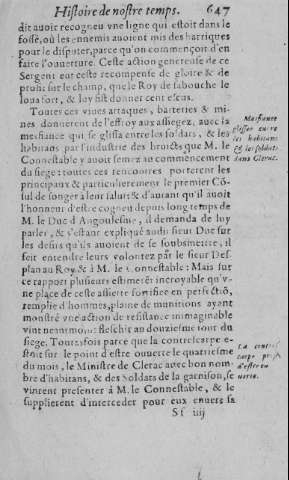 Histoire de nostre temps. 647
dit auoit recogneu vne ligne qui estoit dans le
fossé, où les ennemis auoient mis des barriques
pour le disputer, parce qu'on commençoit d'en
faire l'ouuerture. Ceste action genereuse de ce
Sergent eut ceste recompense de gloire & de
profit sur le champ, que le Roy de sa bouche le
loua fort, & luy fist donner cent escus.
Toutes ces viues attaques, batteries & mi-
nes donnerent de l'effroy aux assiegez, auec la
meschance qui se glissa entre les soldats, & les
habitans par l'industrie des bruicts que M. le
Connestable y auoit semez au commencement
du siege: toutes ces rencontres porterent les
principaux & particulierement le premier Cõ-
sul de songer à leur salut: & d'autant qu'il auoit
l'honneur d'estre cogneu depuis long temps de
M. le Duc d'Angoulesme, il demanda de luy
parler, & s'estant expliqué audit sieur Duc sur
les desirs qu'ils auoient de se soubsmettre, il
feit entendre leurs volontez par le sieur Des-
plan au Roy, & à M. le Connestable: Mais sur
ce rapport plusieurs estimerẽt incroyable qu'v-
ne place de ceste assiette fortifiée en perfectiõ,
remplie d'hommes, plaine de munitions ayant
monstré vne action de resistance immaginable
vint neantmoins fleschir au douziesme iour du
siege. Toutesfois parce que la contrescarpe e-
stoit sur le point d'estre ouuerte le quatriesme
du mois, le Ministre de Clerac auec bon nom-
bre d'habitans, & des Soldats de la garnison, se
vinrent presenter à M. le Connestable, & le
supplierent d'interceder pour eux enuers sa
Sf iiij
Meffiance
glissee entre
les habitans
& les soldats
dans Clerac.
La contres-
carpe
d'estre ou
uerte.